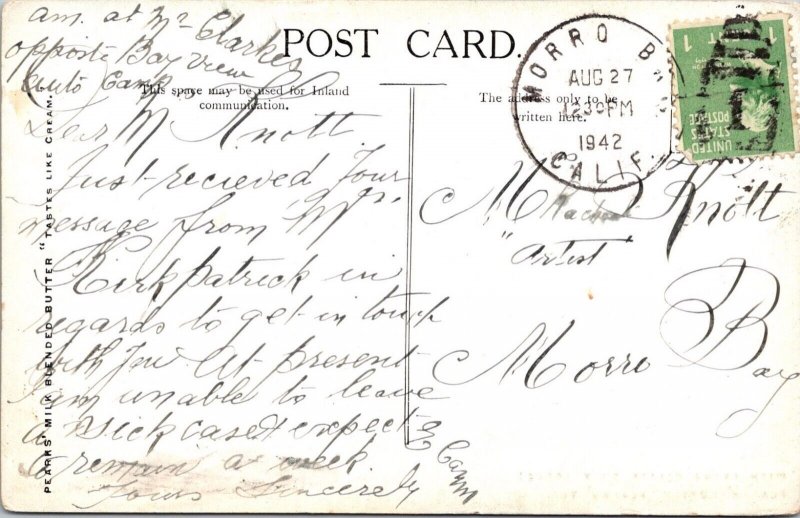 am. at Mr Clarkes
opposite Bay View
Auto Camp
POST CARD.
This space may be used for Inland
communication.
The address only to be
written here.
MORRO BAY
AUG 27
1230 PM
1942
CALIF.
1
UNITED
STATES
POSTAGE
Dear M Knott
Just recieved Your
message from Mrs.
Kirkpatrick in
regards to get in touch
with you At present
I am unable to leave
a sick case & expect
to remain a week
Yours Sincerely
E Camm
M Knott
"Artist"
Morro Bay
PEARKS' MILK BLENDED BUTTER "TASTES LIKE CREAM.